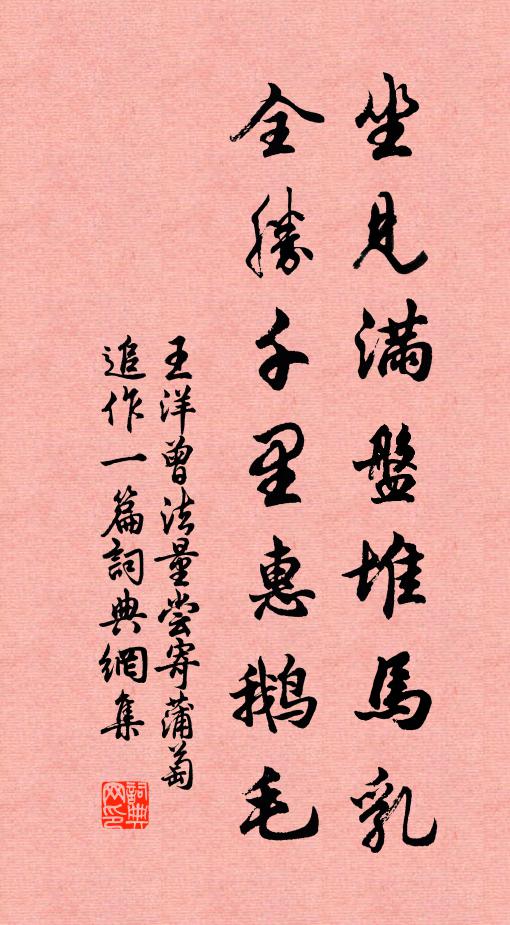 坐見滿盤堆馬乳
全勝千里惠鵝毛
王洋曾法量嘗寄蒲萄
追作一篇詞典網集
詞典
网印